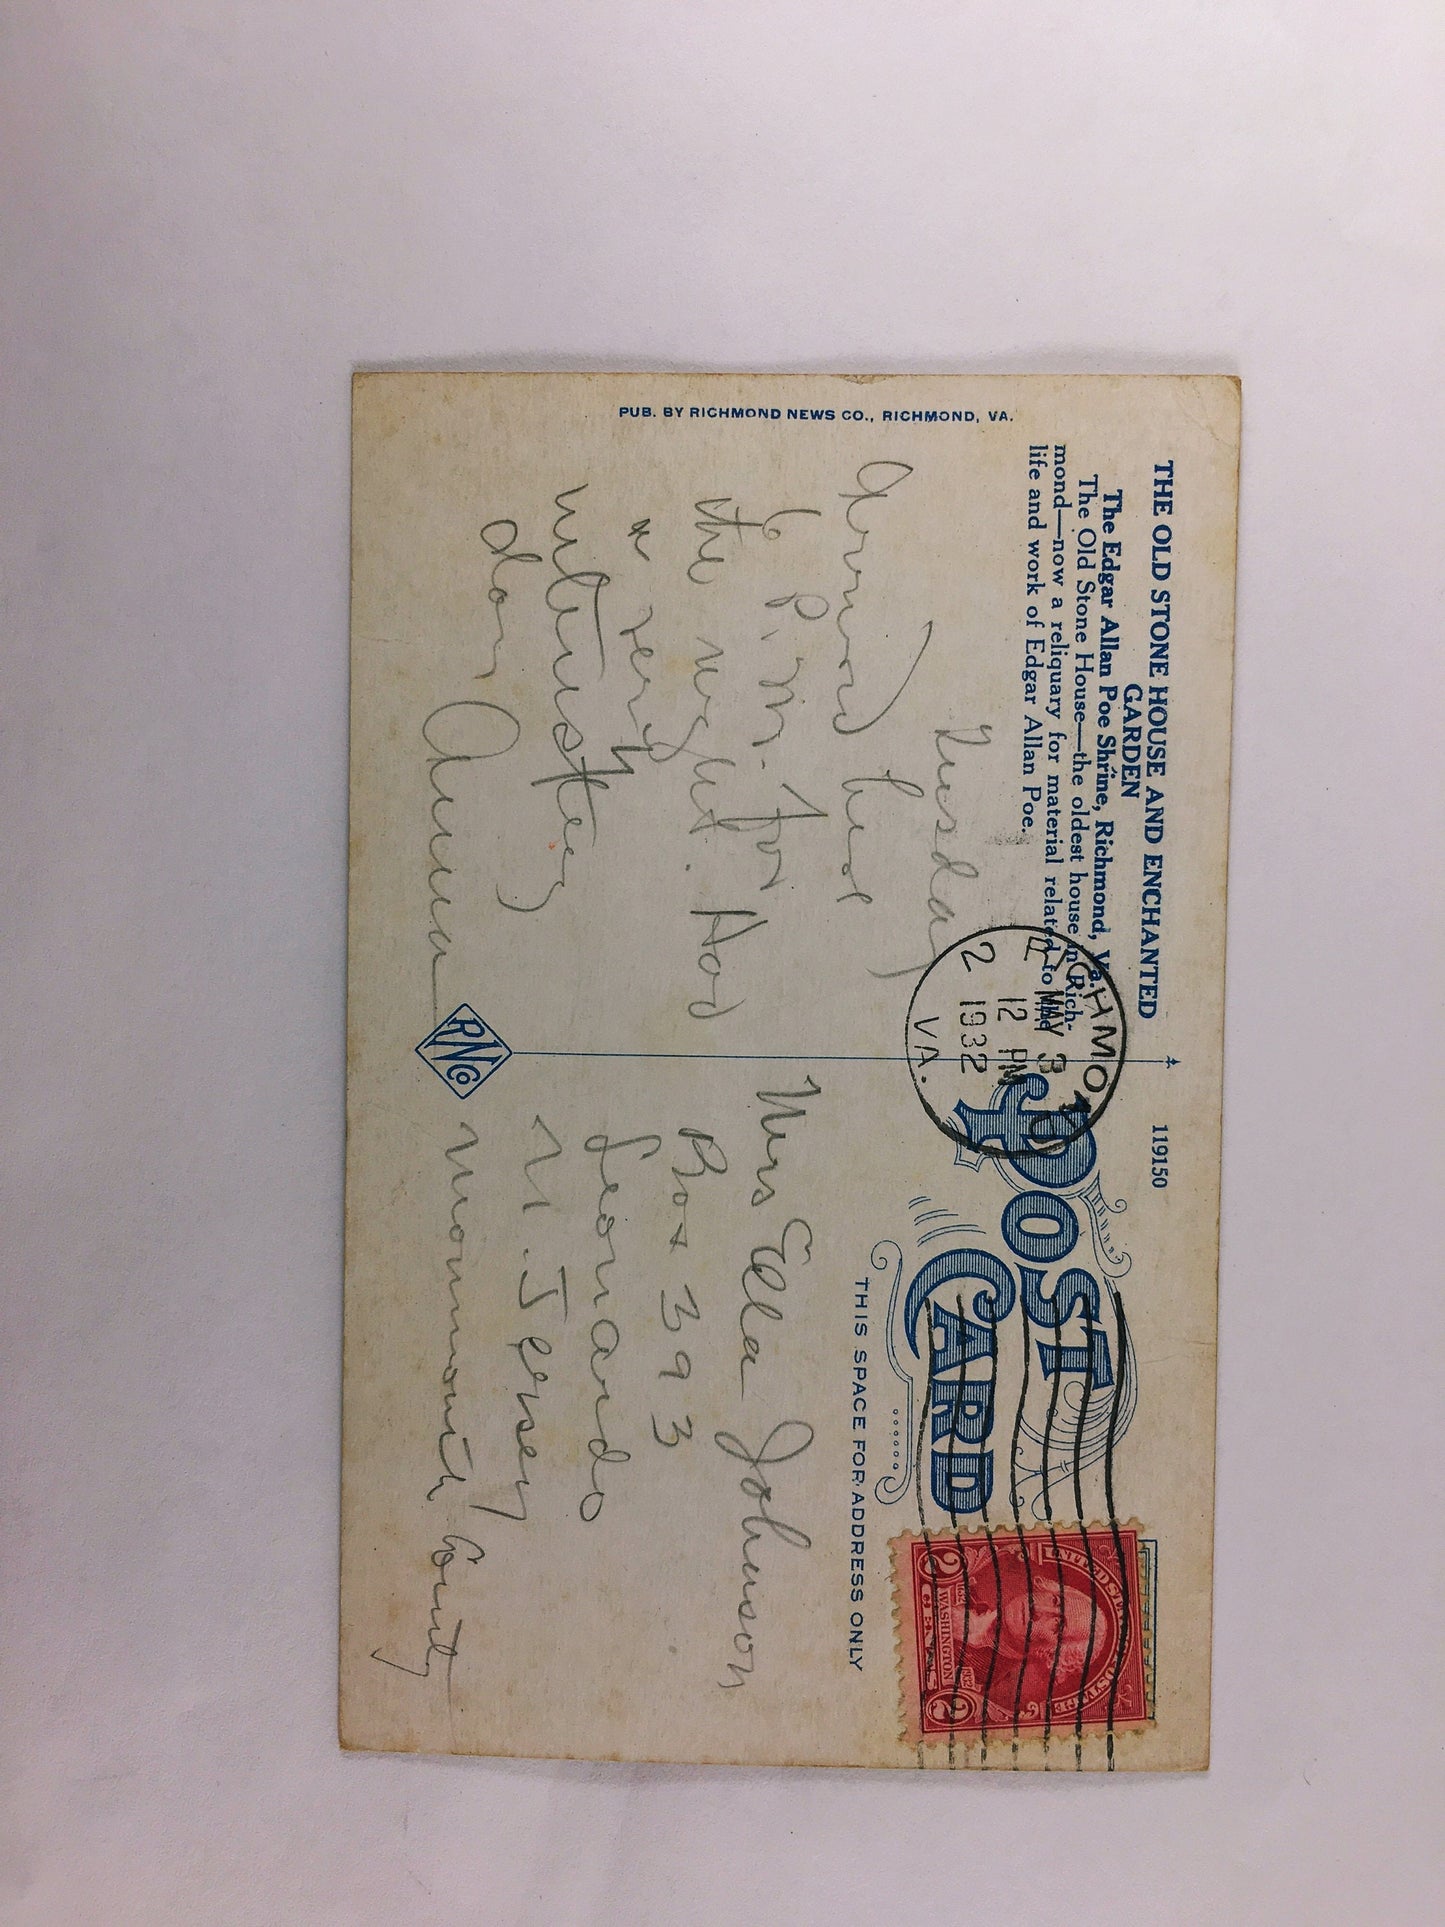 THE OLD STONE HOUSE AND ENCHANTED
GARDEN
The Edgar Allan Poe Shrine, Richmond, Va.
The Old Stone House—the oldest house in Rich-
mond—now a reliquary for material related to the
life and work of Edgar Allan Poe.
PUB. BY RICHMOND NEWS CO., RICHMOND, VA.
Tuesday
Arrived here
6 P.M. for
the night. Had
a very
interesting
day
RNCo
119150
POST
CARD
THIS SPACE FOR ADDRESS ONLY
RICHMOND
MAY 3
12 PM
1932
VA.
2
UNITED STATES POSTAGE
1732 1932
WASHINGTON
2 CENTS 2
Mrs Ella Johnson
Box 393
Leonardo
N. Jersey
Monmouth County